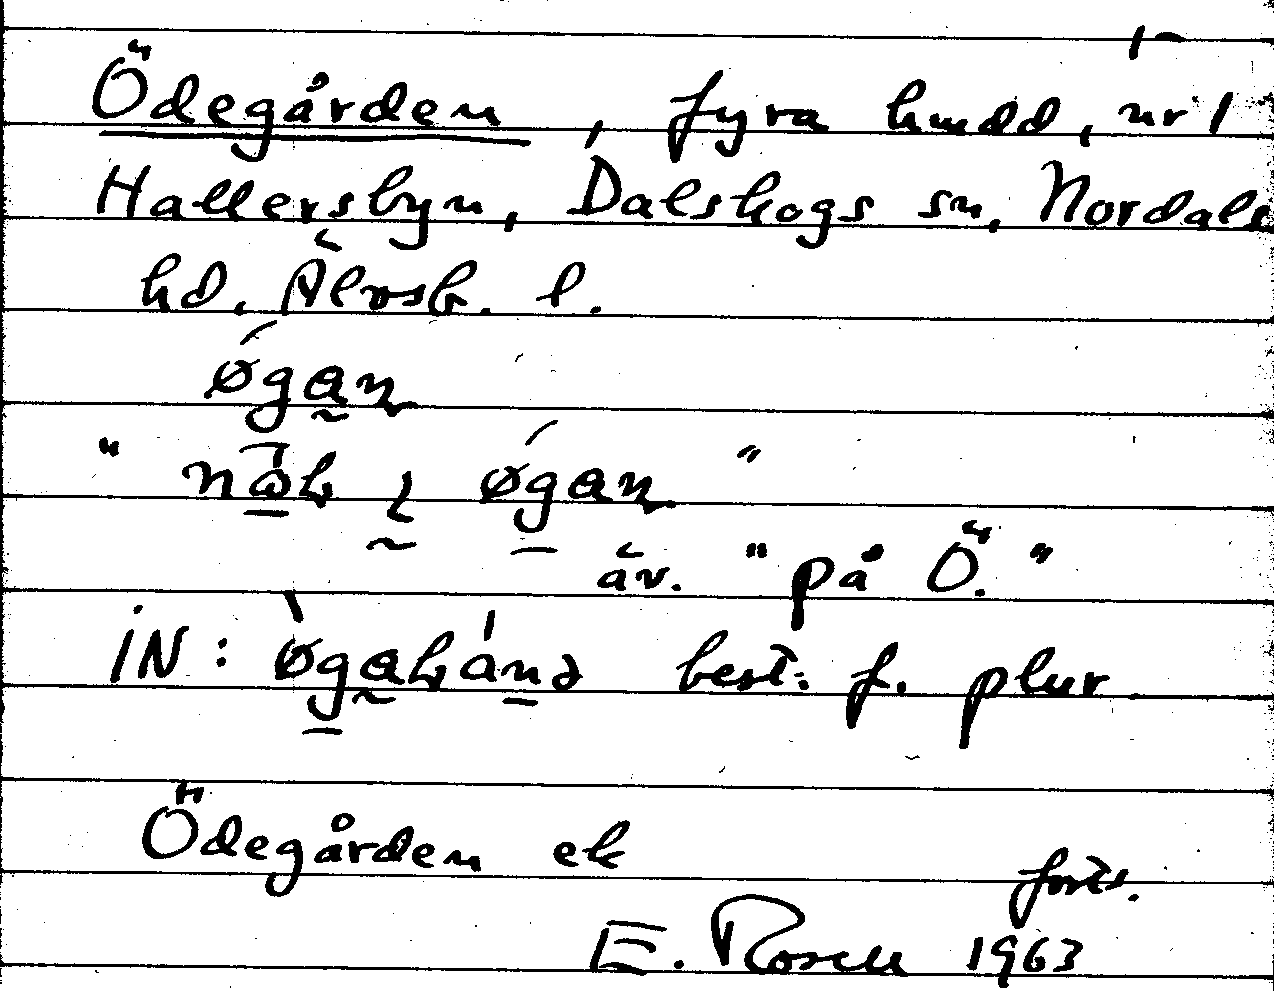 1-
Ödegården, fyra hmdd, nr 1
Hallersbyn, Dalskogs sn, Nordals
hd. Älvsb. l.
øgan
" øgan "
äv. "på Ö."
IN: best. f. plur.
Ödegården ek
forts.
E. Rosell 1963